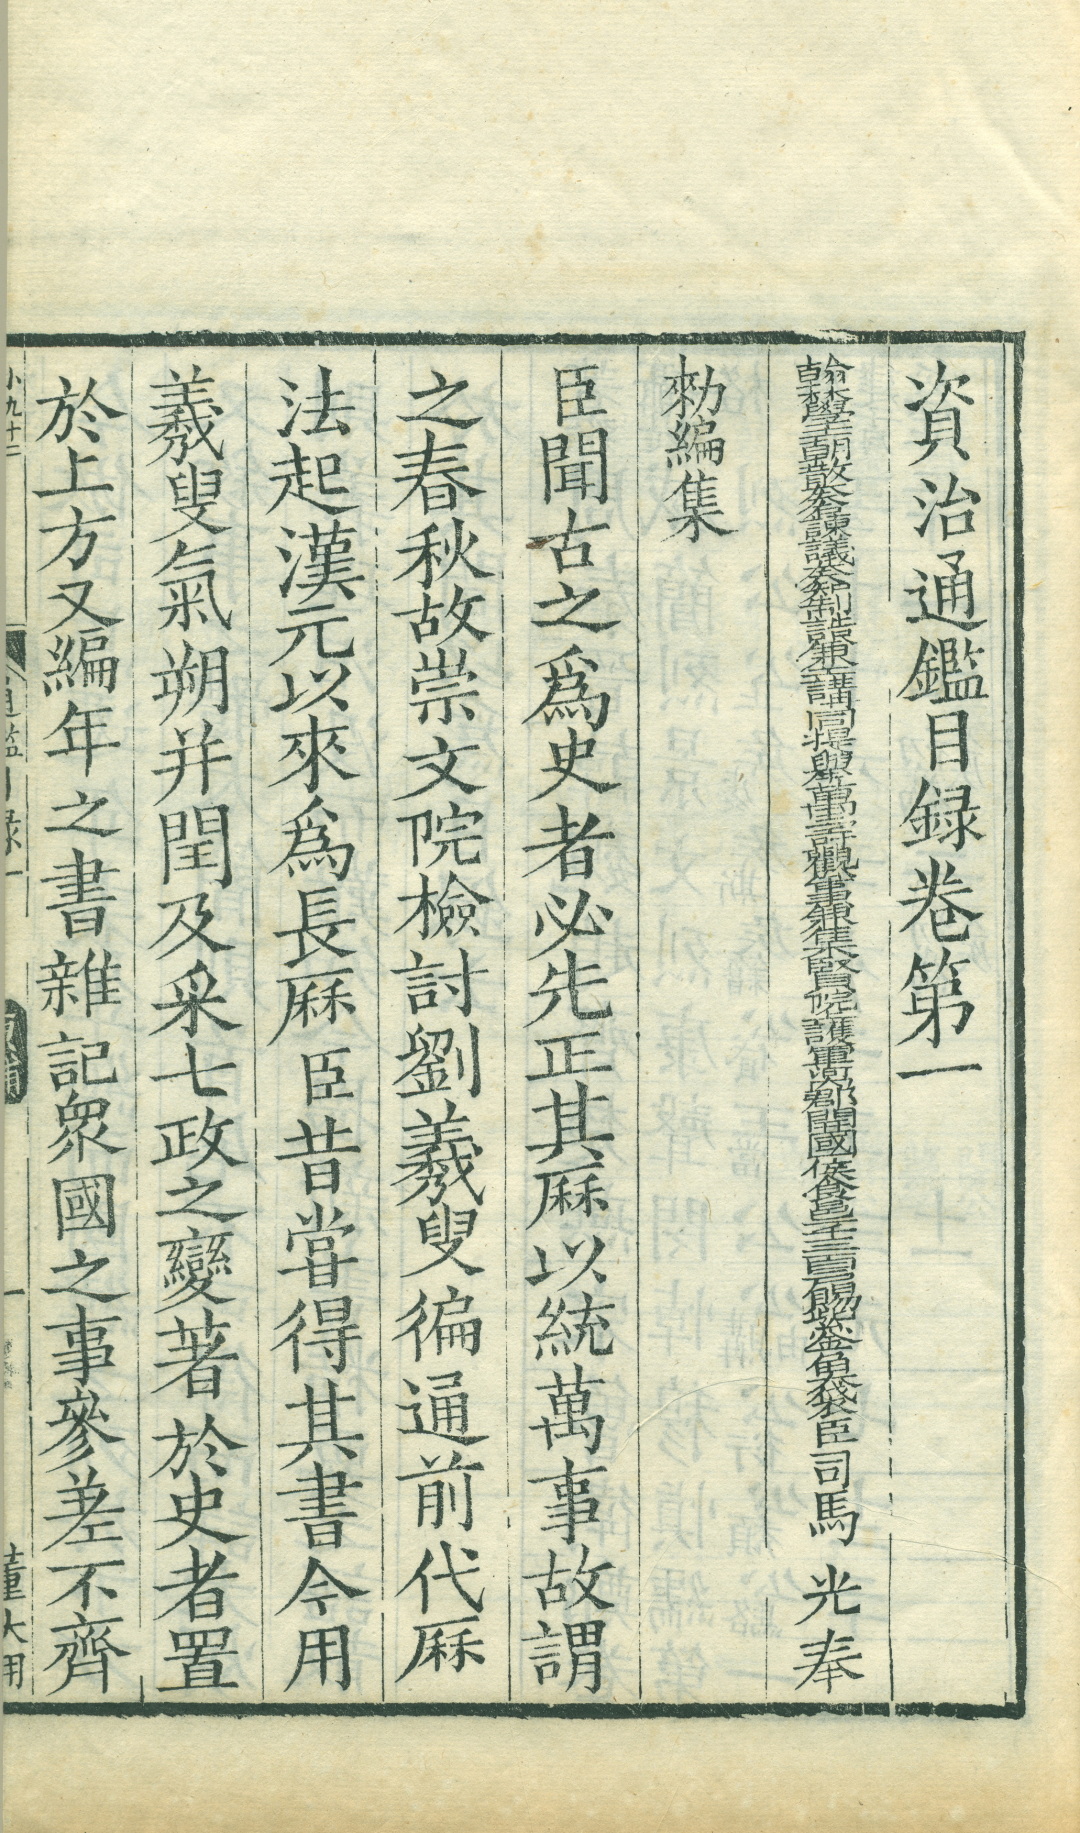 資治通鑑目録卷第一
翰林學士朝散大夫右諫議大夫知制誥兼侍講同提舉萬壽觀公事兼集賢院上護軍河內郡開國侯食邑一千三百戶賜紫金魚袋臣司馬光奉
勑編集
臣聞古之爲史者必先正其厤以統萬事故謂
之春秋故崇文院檢討劉羲叟徧通前代厤
法起漢元以來爲長厤臣昔嘗得其書今用
羲叟氣朔并閏及采七政之變著於史者置
於上方又編年之書雜記衆國之事參差不齊
小九十二
通鑑目録一
一
董大用